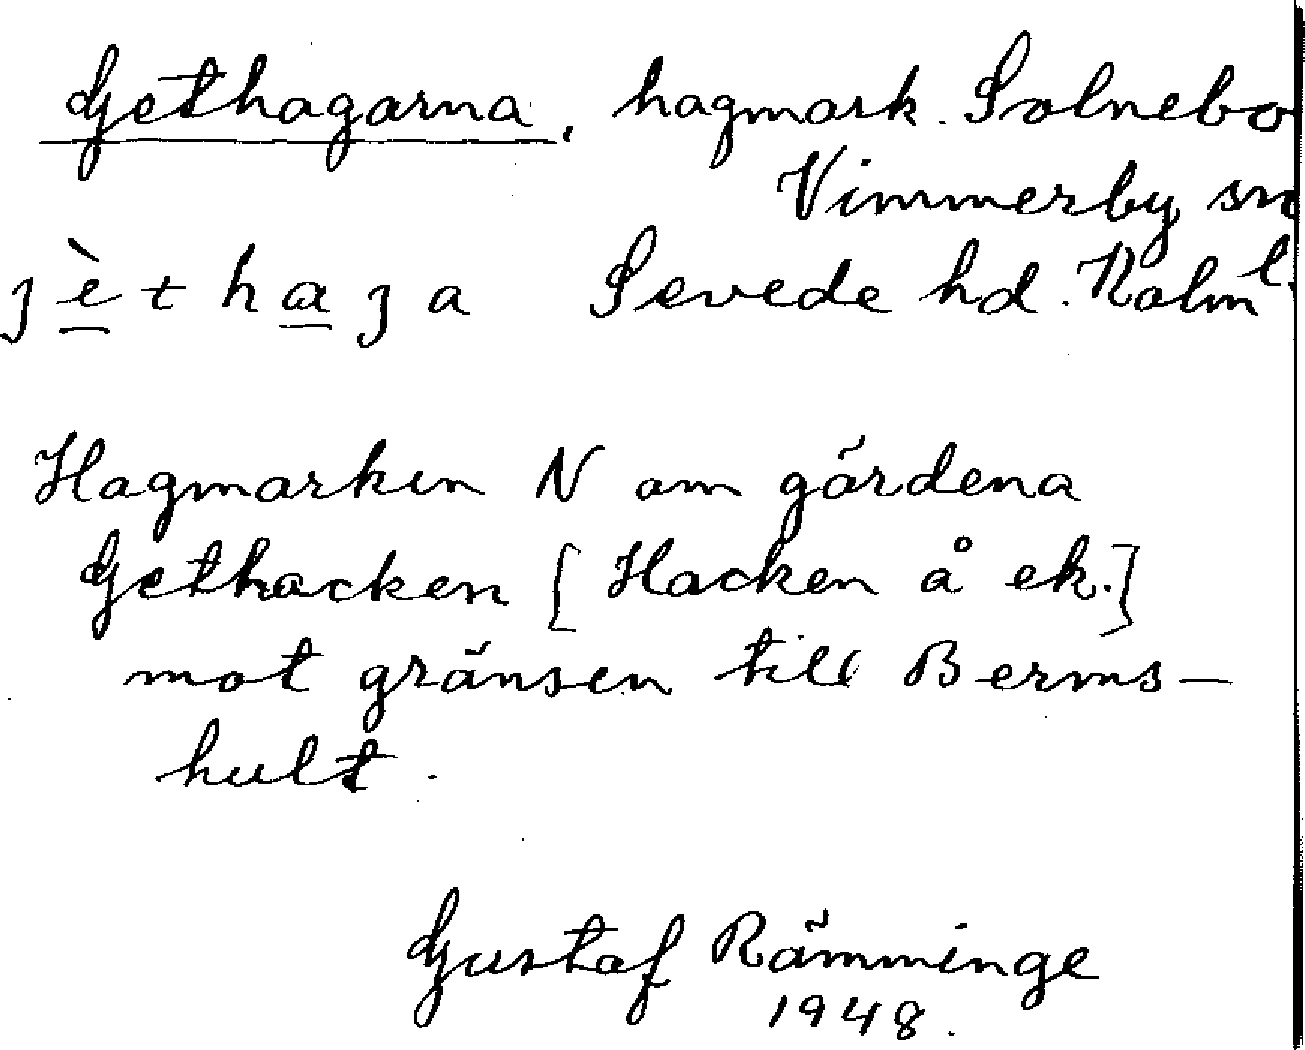 Gethagarna, hagmark. Solnebo
Vimmerby sn
jèthaga Sevede hd. Kalm l.
Hagmarken N om gärdena
Gethacken [Hacken å ek.]
mot gränsen till Berms-
hult.
Gustaf Rämminge
1948.